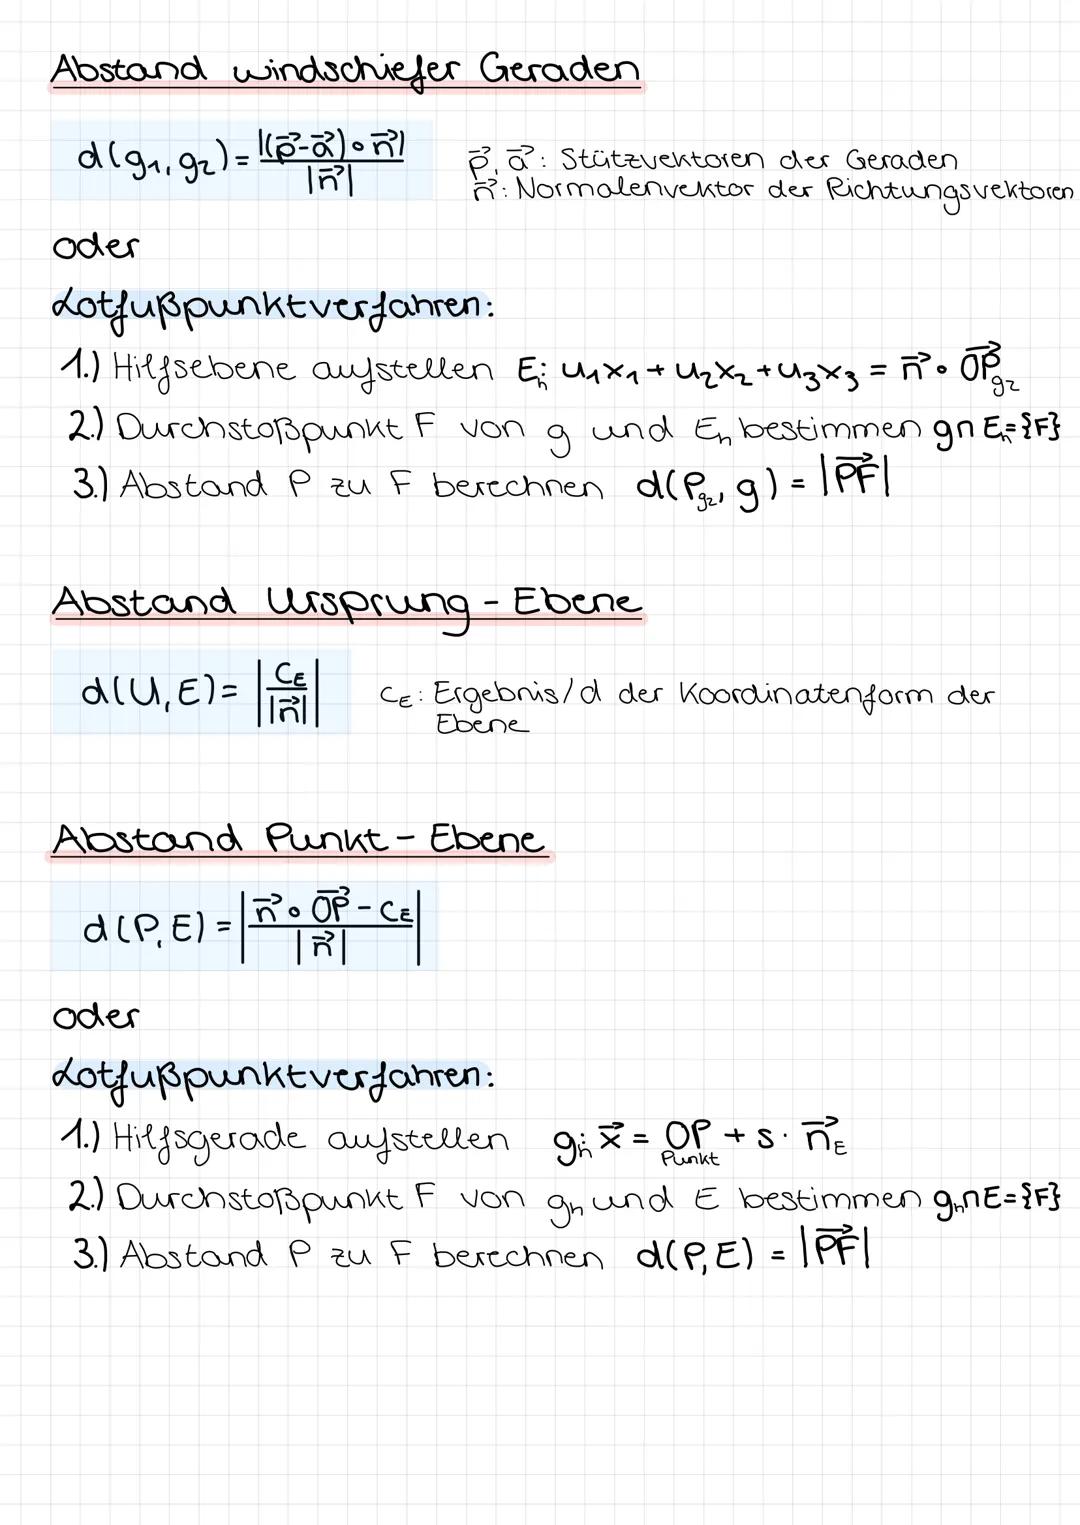 Abstand windschiefer Geraden
d(g₁,g₂)= |(p⃗-a⃗)∘n⃗| / |n⃗|
p⃗, a⃗: Stützvektoren der Geraden
n⃗: Normalenvektor der Richtungsvektoren
oder
Lotfußpunktverfahren:
1.) Hilfsebene aufstellen Eₕ: u₁x₁+u₂x₂+u₃x₃ = n⃗ ∘ OP⃗g₂
2.) Durchstoßpunkt F von g und Eₕ bestimmen g∩Eₕ={F}
3.) Abstand P zu F berechnen d(Pg₂, g) = |PF⃗|
Abstand Ursprung - Ebene
d(U,E)= |c_E / |n⃗||
c_E: Ergebnis/d der Koordinatenform der
Ebene
Abstand Punkt - Ebene
d(P,E) = |(n⃗ ∘ OP⃗ - c_E) / |n⃗||
oder
Lotfußpunktverfahren:
1.) Hilfsgerade aufstellen gₕ: x⃗ = OP + s · n⃗_E
Punkt
2.) Durchstoßpunkt F von gₕ und E bestimmen gₕ∩E={F}
3.) Abstand P zu F berechnen d(P,E) = |PF⃗|